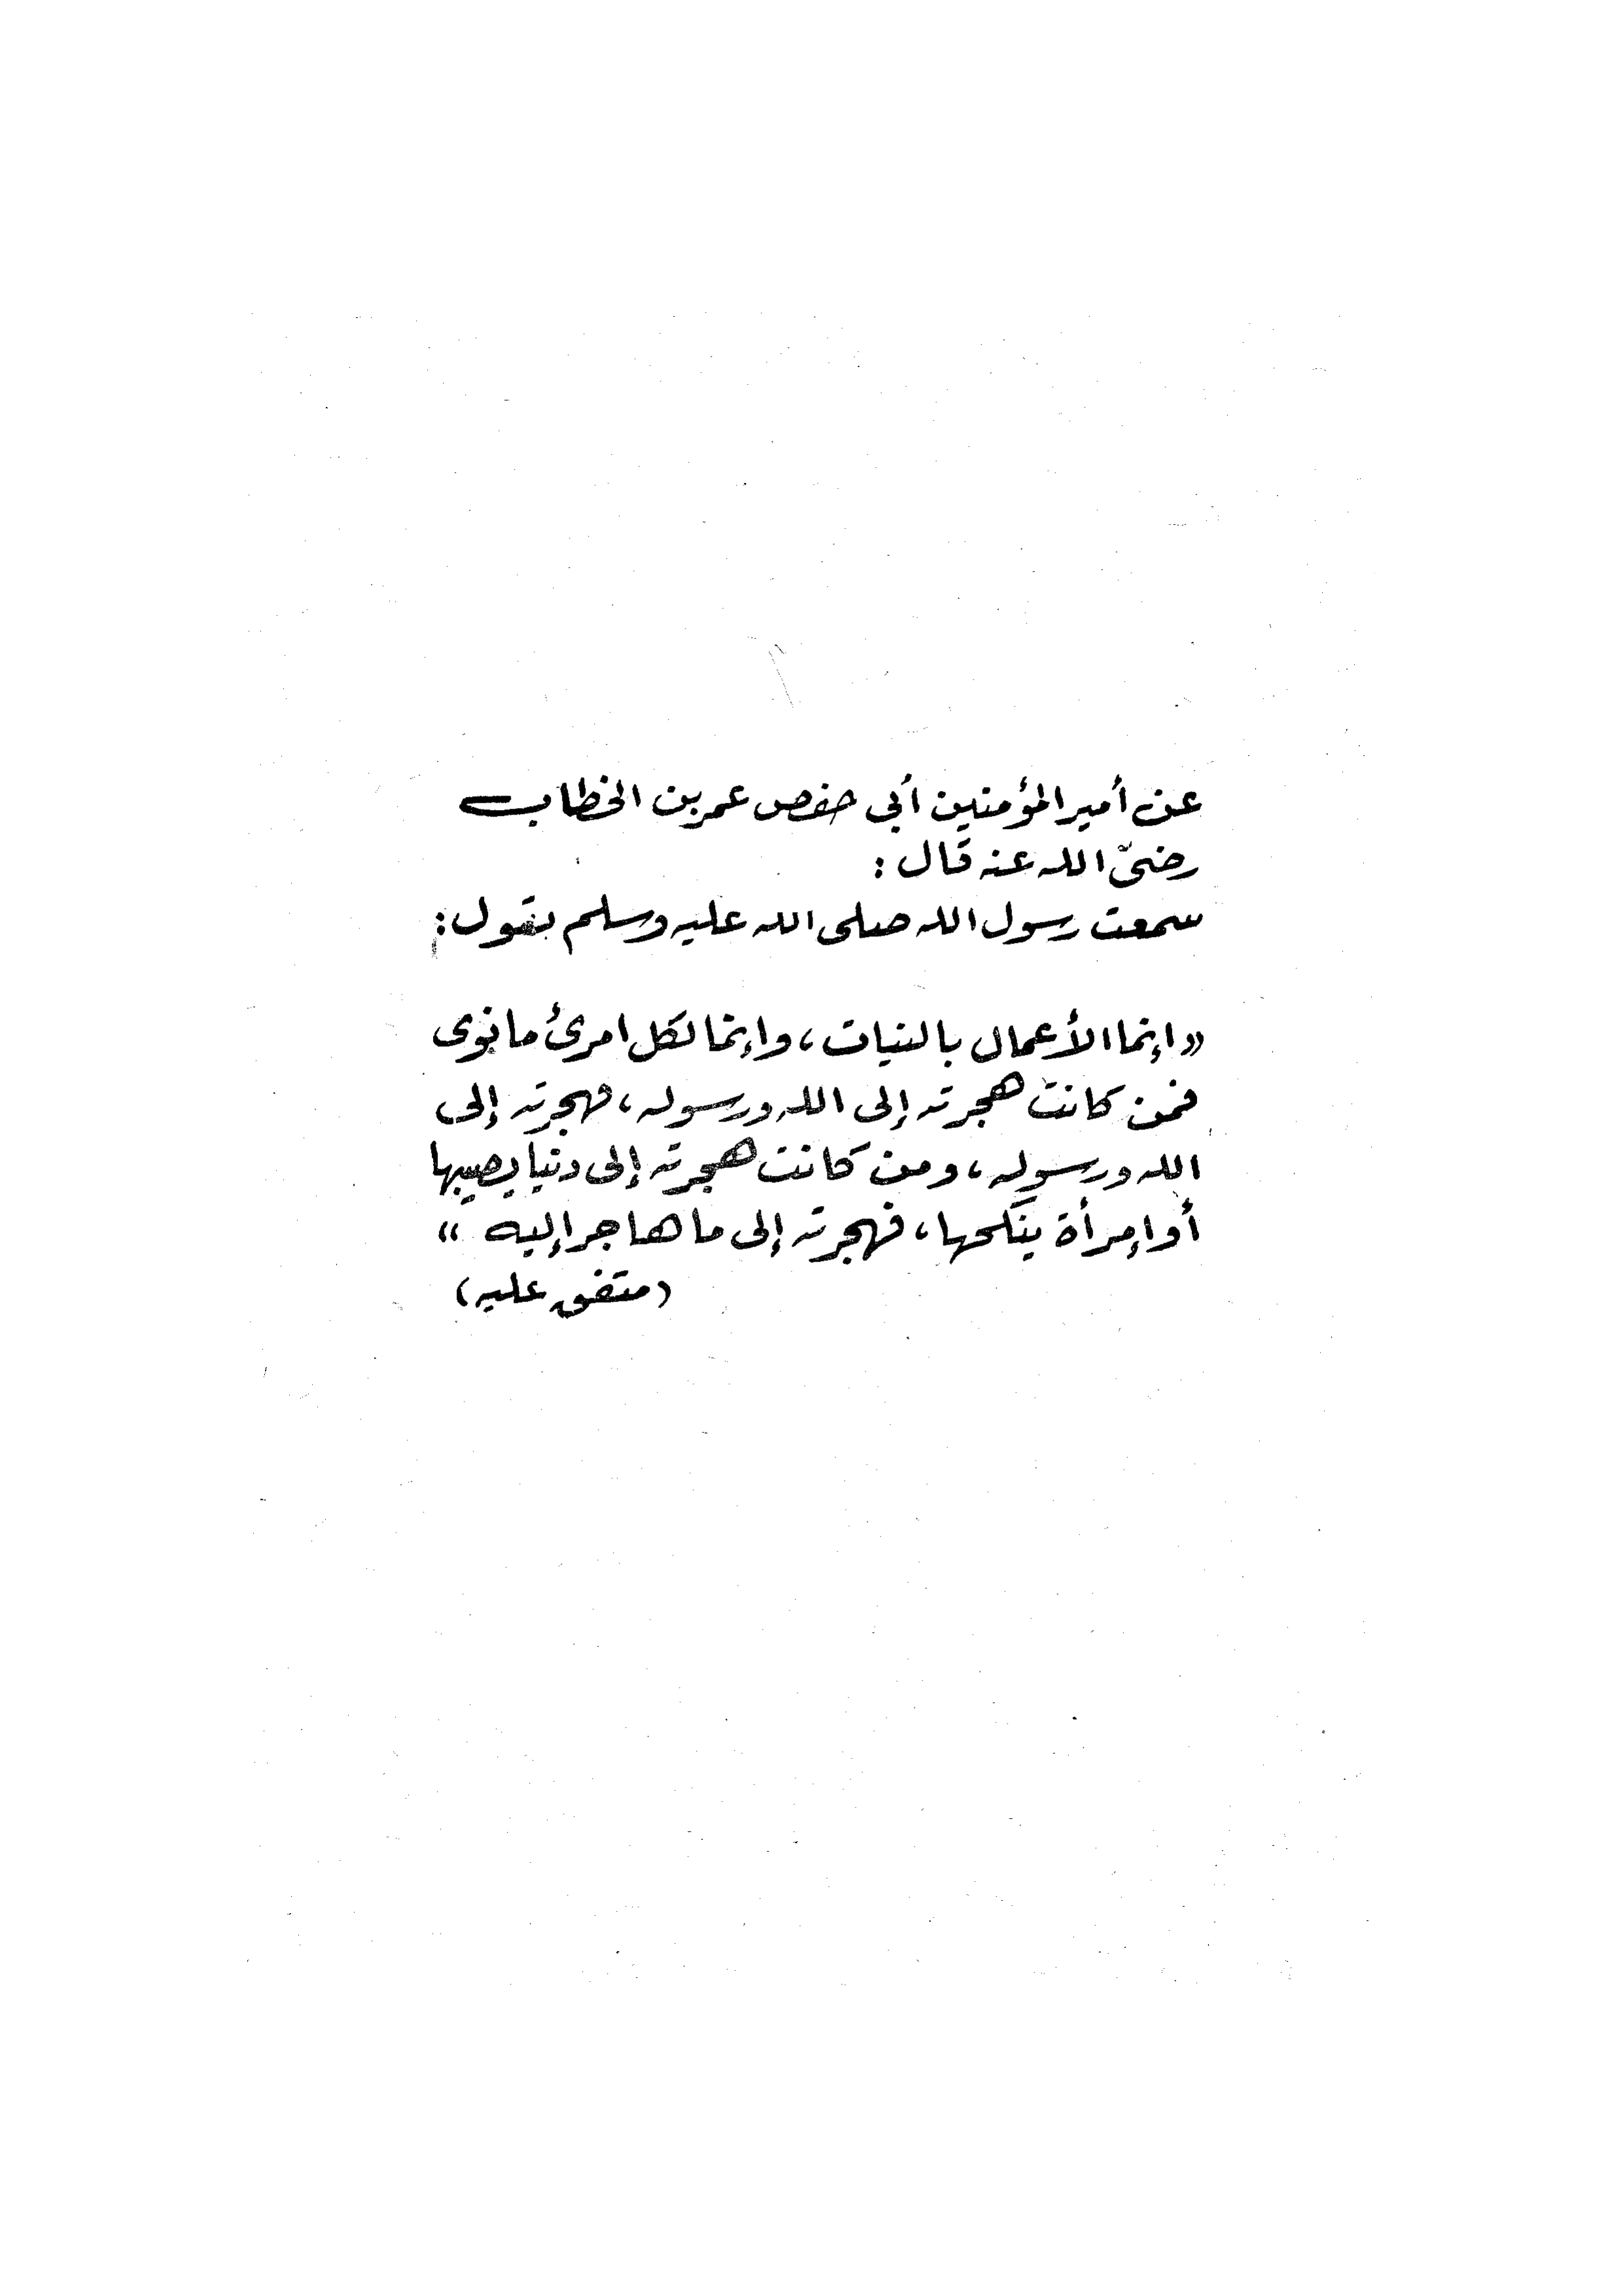 عن أمير المؤمنين أبي حفص عمر بن الخطاب
رضيّ الله عنه قال :
سمعت رسول الله صلى الله عليه وسلم يقول :
« إنما الأعمال بالنيات ، وإنما لكل امرئ ما نوى
فمن كانت هجرته إلى الله ورسوله ، فهجرته إلى
الله ورسوله ، ومن كانت هجرته إلى دنيا يصيبها
أو إمرأة ينكحها ، فهجرته إلى ما هاجر إليه »
(متفق عليه)